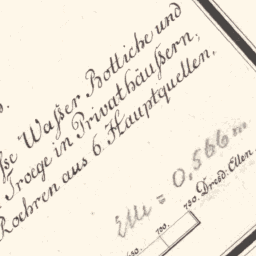 Waſser Bottiche und
Troege in Privathäuſsern,
Roehren aus 6. Hauptquellen.
Elle = 0,566 m
700. 750. Dresd: Ellen.